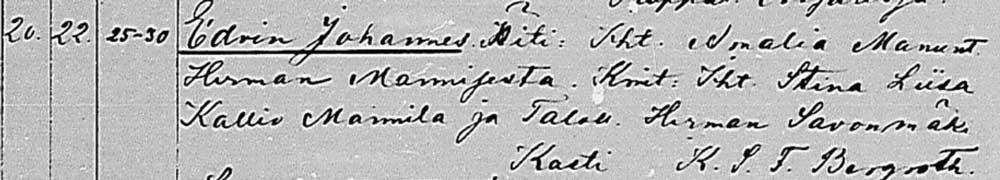 20. 22. 25-30 Edvin Johannes. Äiti: Iht. Amalia Manunt
Herman Mannisesta. Kmit: Iht. Stina Liisa
Kallio Mannila ja Talou. Herman Savonmäki
Kasti K. S. F. Bergroth.